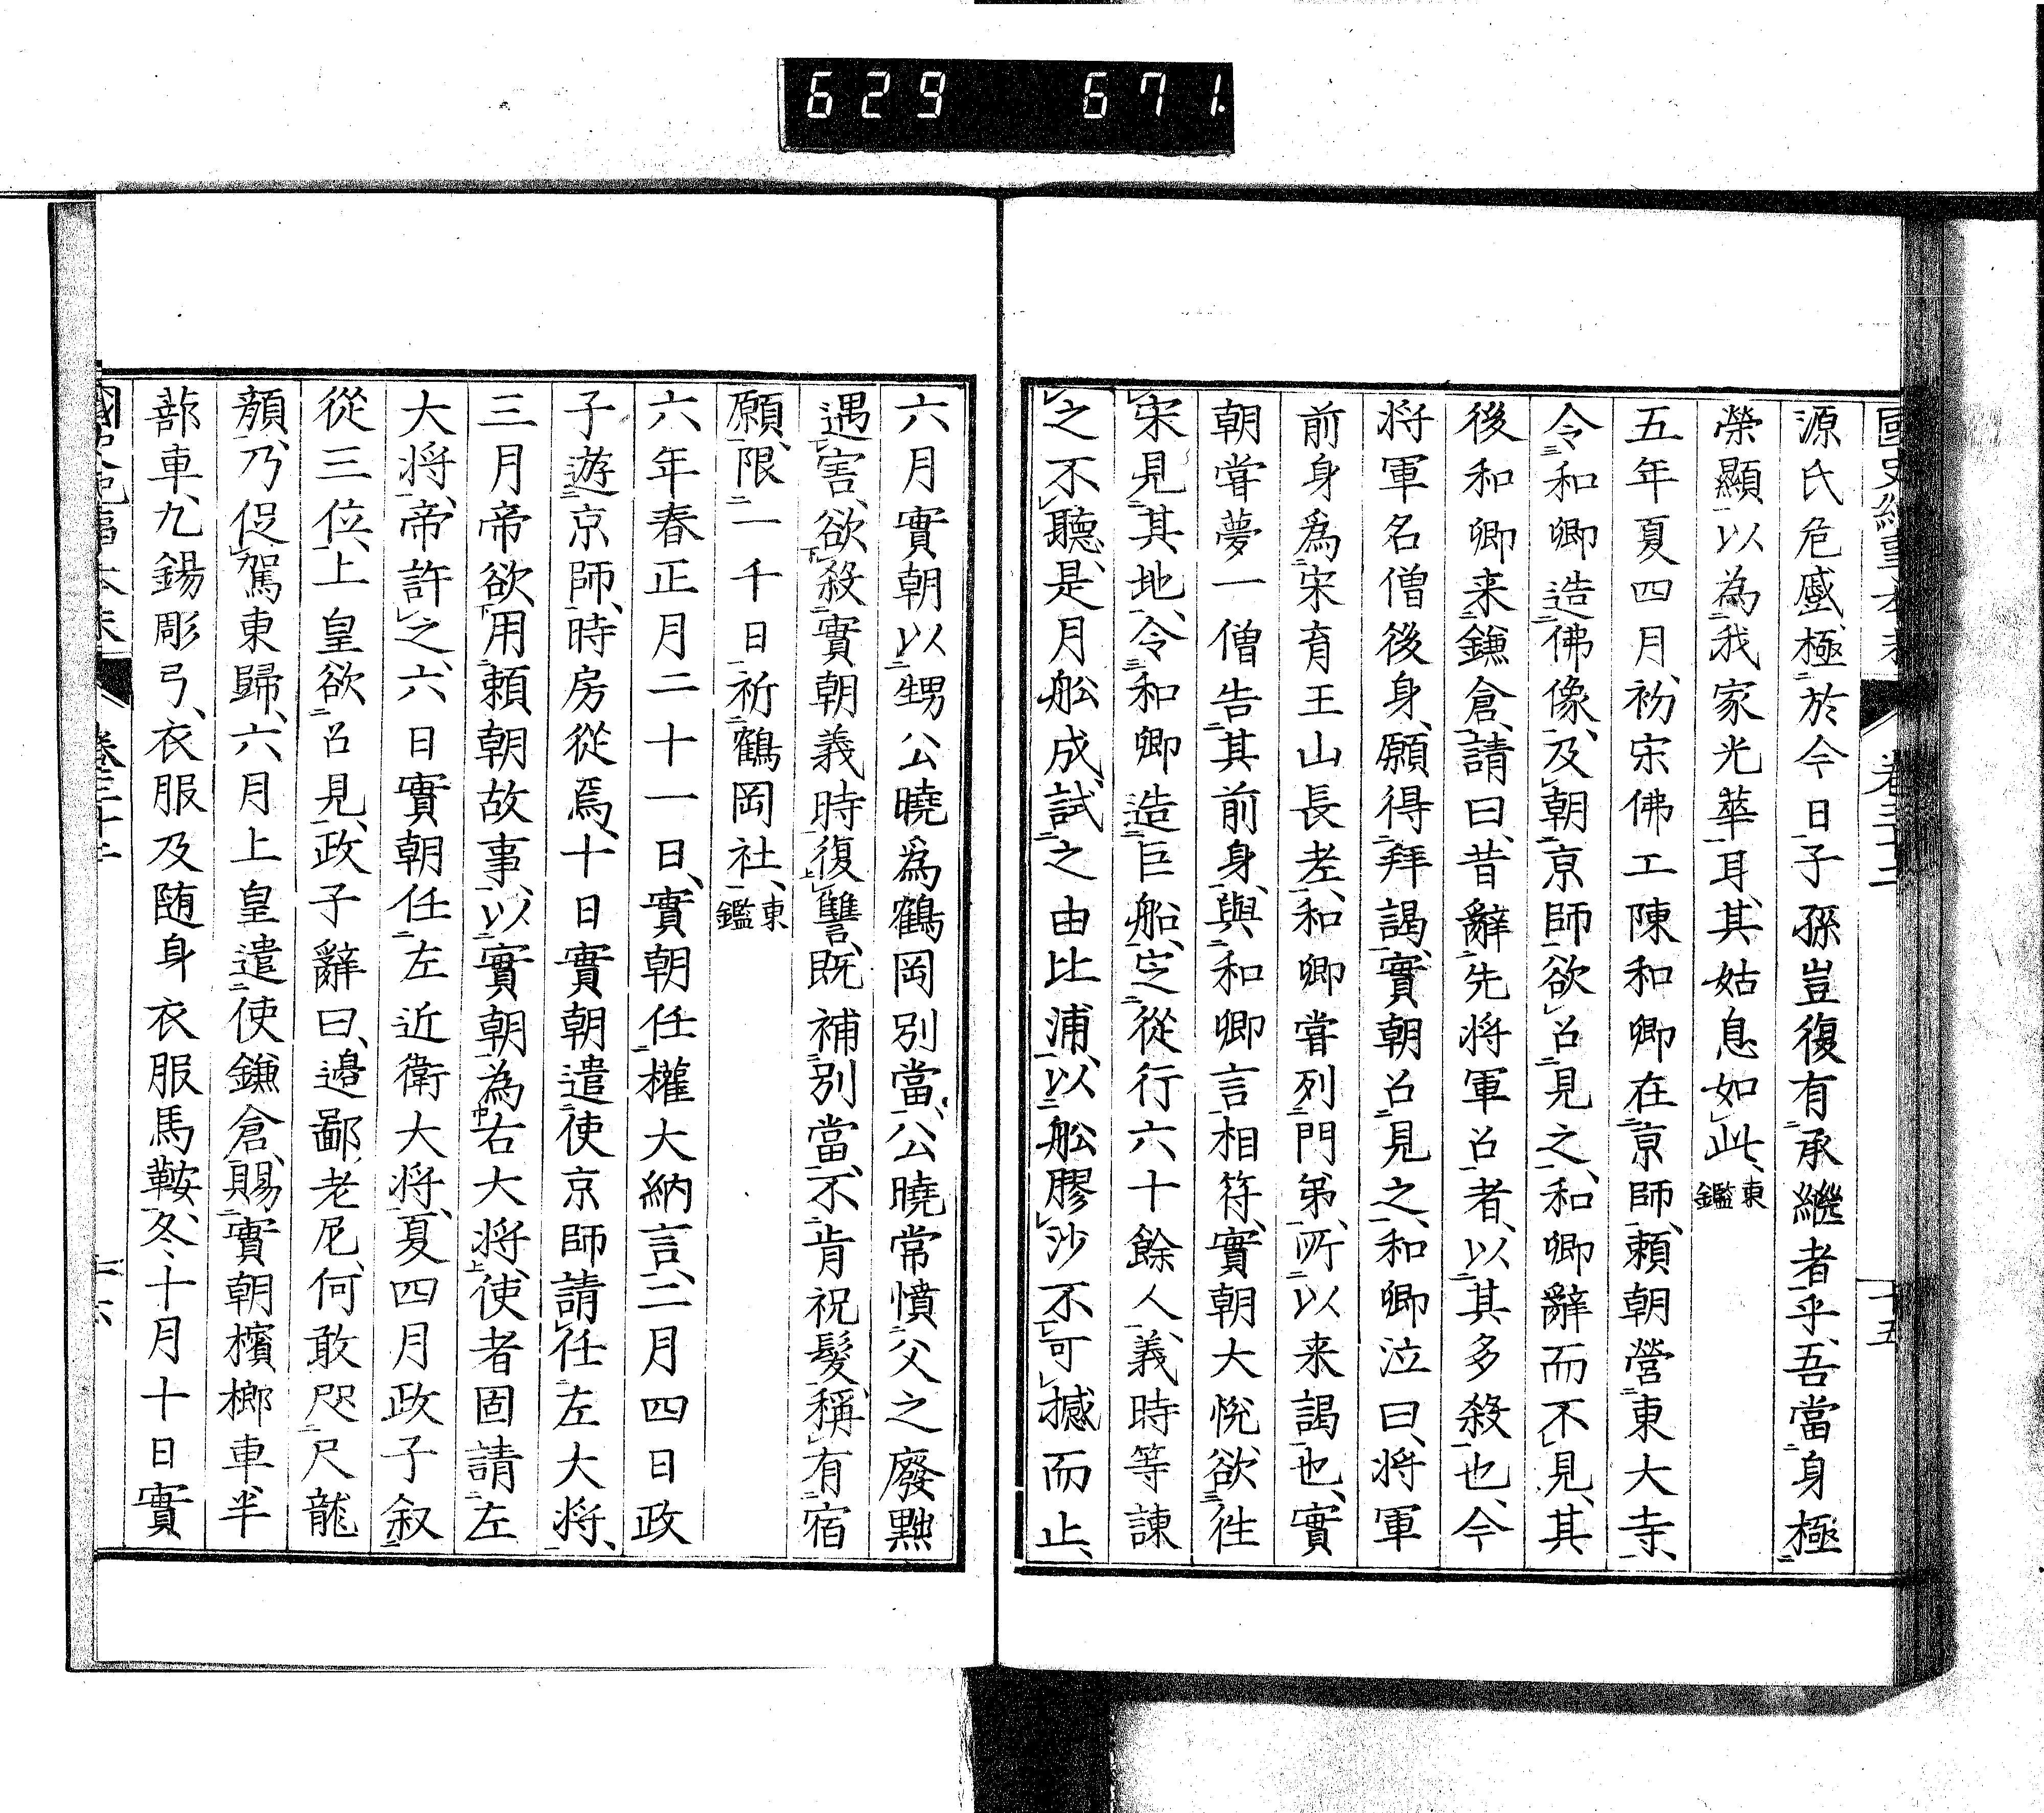 629 671
國史紀事本末 卷三十二 十五
源氏危蹙極於今日子孫豈復有承繼者乎、吾當身極
榮顯以為我家光華耳、其姑息如此、東鑑
五年夏四月、初宋佛工陳和卿在京師、賴朝營東大寺、
令和卿造佛像、及朝京師欲召見之、和卿辭而不見、其
後和卿来鎌倉、請曰、昔辭先将軍召者、以其多殺也、今
将軍名僧後身、願得拜謁、實朝召見之、和卿泣曰、将軍
前身爲宋育王山長老、和卿嘗列門弟、所以来謁也、實
朝嘗夢一僧告其前身、與和卿言相符、實朝大悅、欲徃
宋見其地、令和卿造巨船、定從行六十餘人、義時等諫
之不聽、是月舩成、試之由比浦、以舩膠沙不可撼而止、
六月實朝以甥公曉爲鶴岡別當、公曉常憤父之廢黜
遇害、欲殺實朝義時復讐、既補別當、不肯祝髮、稱有宿
願、限一千日祈鶴岡社、東鑑
六年春正月二十一日、實朝任權大納言、二月四日政
子遊京師、時房從焉、十日實朝遣使京師請任左大将、
三月帝欲用賴朝故事、以實朝為右大将、使者固請左
大将、帝許之、六日實朝任左近衛大将、夏四月政子叙
從三位、上皇欲召見、政子辭曰、邊鄙老尼、何敢咫尺龍
顏、乃促駕東歸、六月上皇遣使鎌倉、賜實朝檳榔車、半
蔀車、九錫彫弓、衣服及随身衣服馬鞍、冬、十月十日實
國史紀事本末 卷三十二 十六